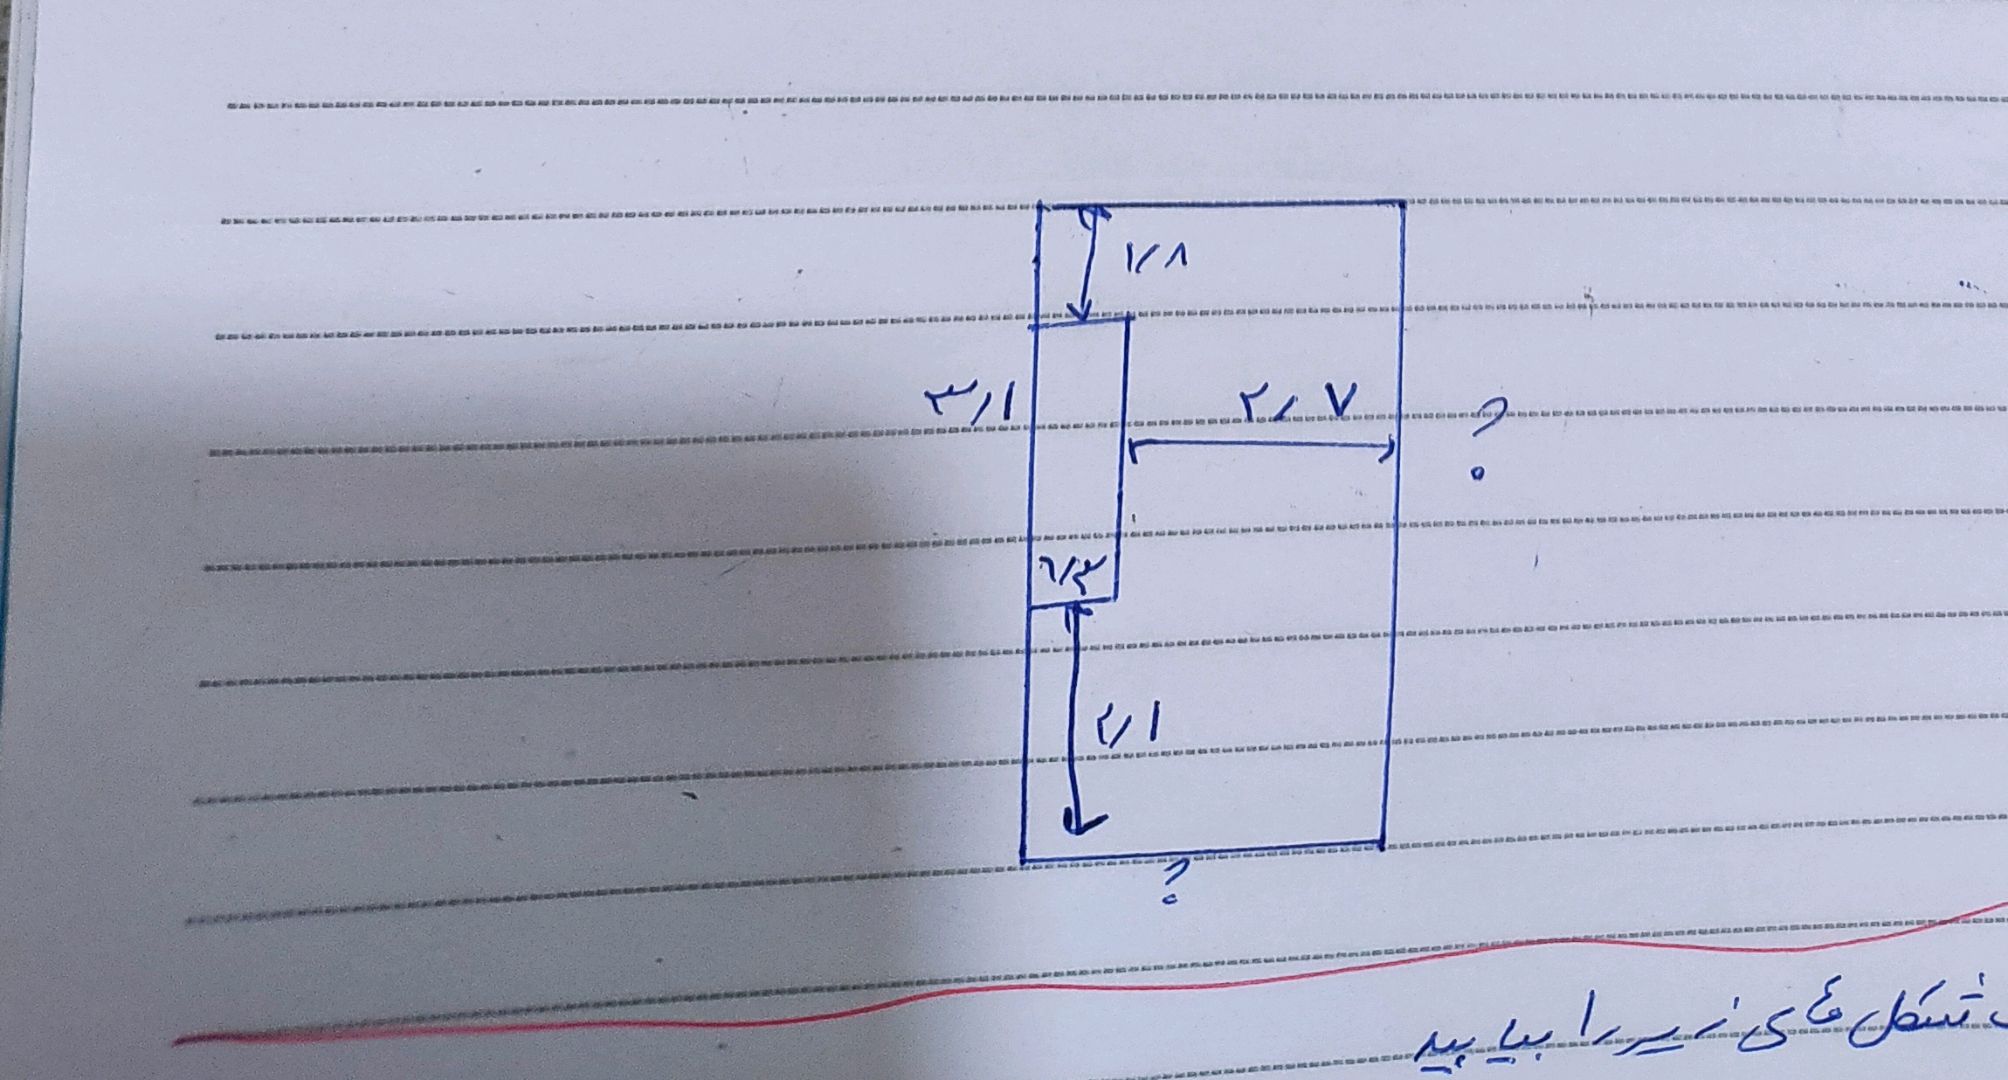 ۱٫۸
۳٫۱
۲٫۷
؟
۶٫۳
۲٫۱
؟
شکل های زیر را بیابید